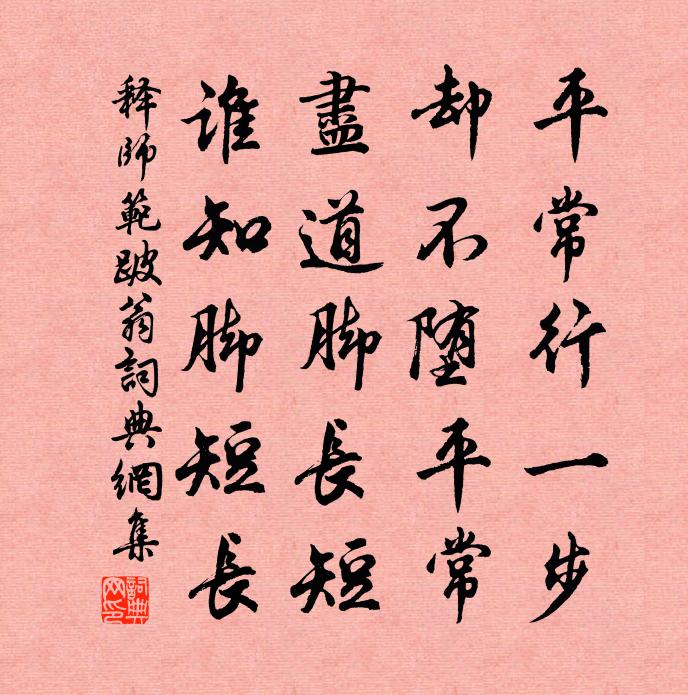 平常行一步
却不堕平常
盡道脚長短
誰知脚短長
释師範跛翁詞典網集
詞典网印